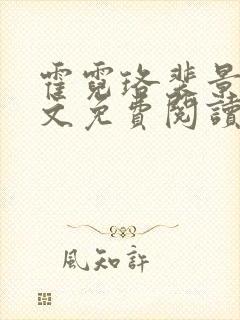 霍霓珞裴景
文免費閱讀
風知許